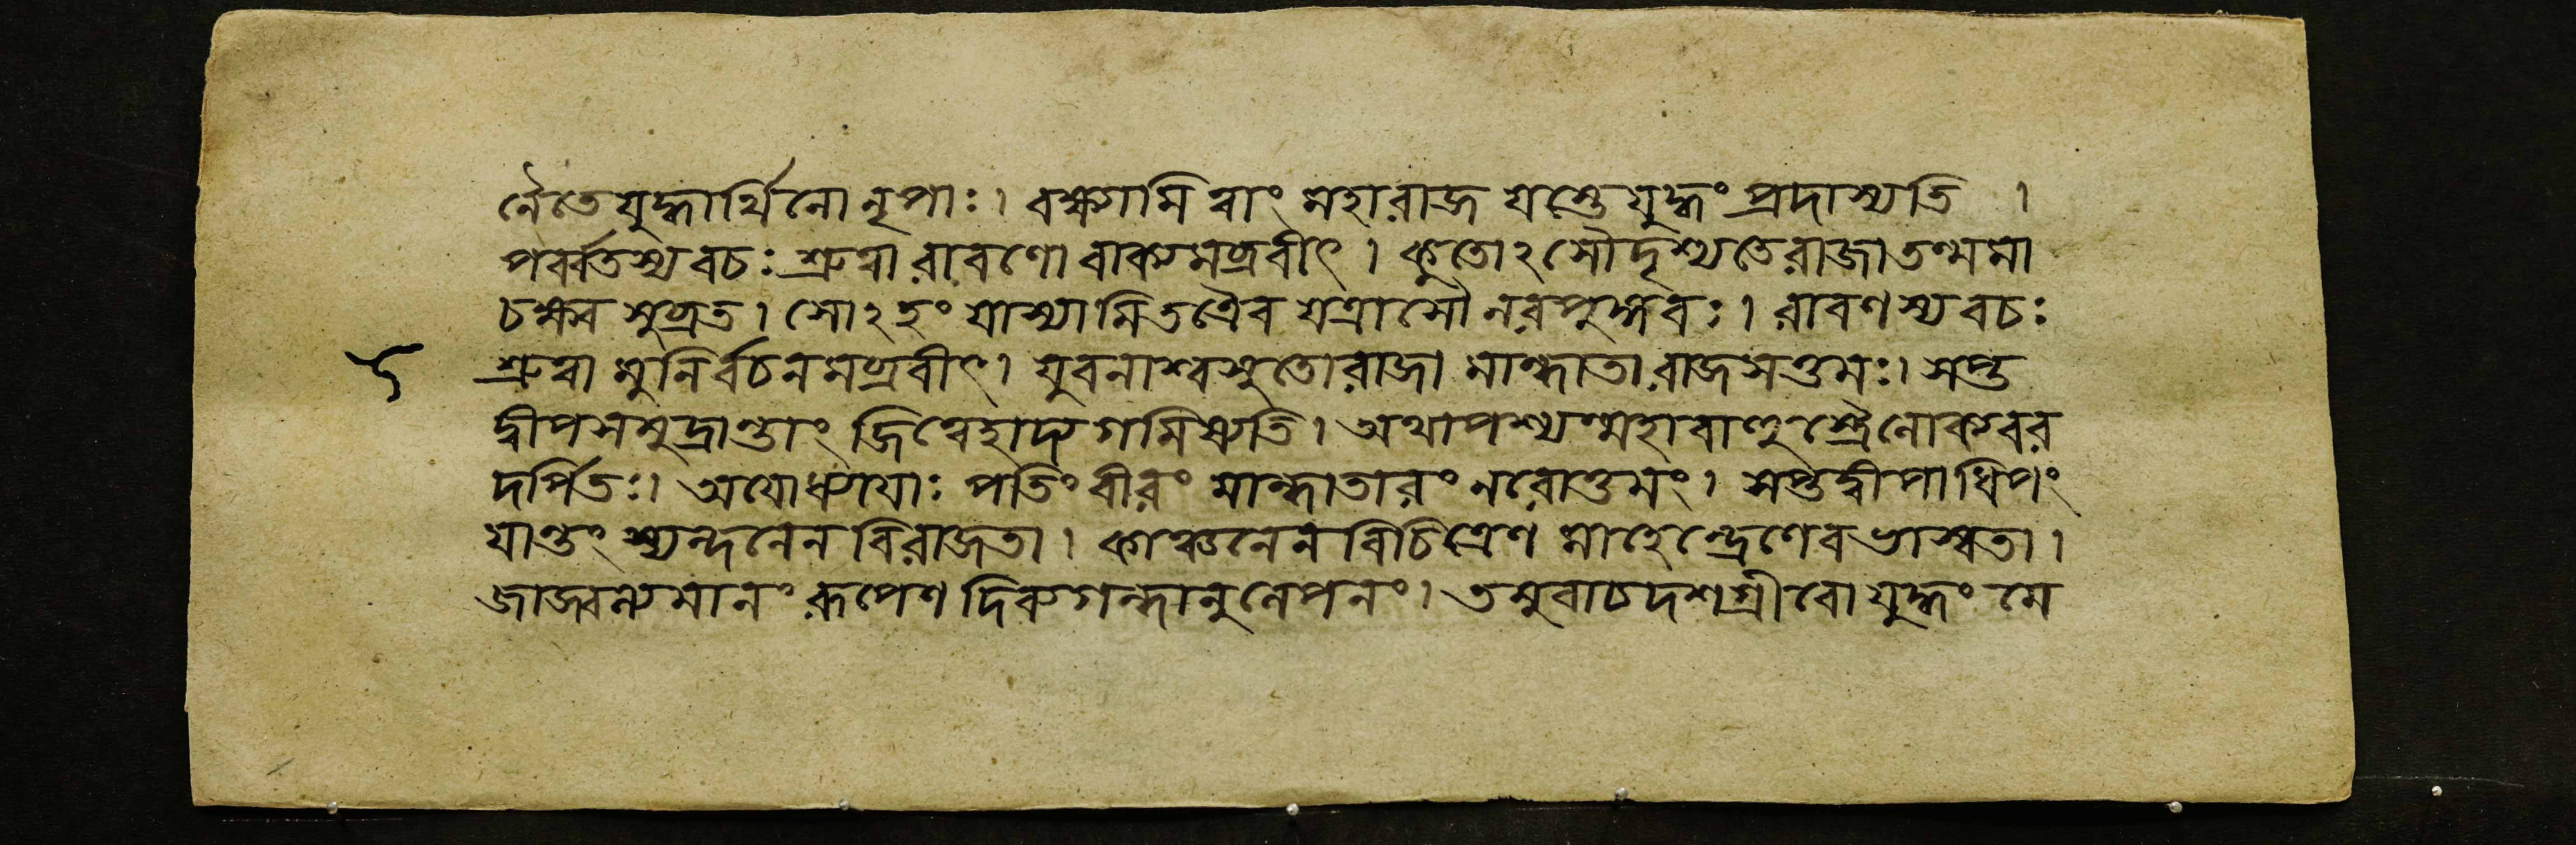 র্নৈতে যুদ্ধার্থিনো নৃপাঃ। বক্ষ্যামি ত্বাং মহারাজ যস্তে যুদ্ধং প্রদাস্যতি ।
পর্ব্বতস্য বচঃ শ্রুত্বা রাবণো বাক্যমব্রবীৎ । কুতোঽসৌ দৃশ্যতে রাজা তন্মমা
চক্ষ্ব সুব্রত । সোঽহং যাস্যামি তত্রৈব যত্রাসৌ নরপুঙ্গবঃ । রাবণস্য বচঃ
শ্রুত্বা মুনির্বচনমব্রবীৎ। যুবনাশ্বসুতো রাজা মান্ধাতা রাজসত্তমঃ। সপ্ত
দ্বীপসমুদ্রান্তাং জিত্বেহাদ্য গমিষ্যতি। অথাপশ্যন্মহাবাহুস্ত্রৈলোক্যবর
দর্পিতঃ। অযোধ্যায়াঃ পতিং বীরং মান্ধাতারং নরোত্তমং। সপ্তদ্বীপাধিপং
যান্তং স্যন্দনেন বিরাজতা । কাঞ্চনেন বিচিত্রেণ মাহেন্দ্রেণেব ভাস্বতা ।
জাজ্বল্যমানং রূপেণ দিব্যগন্ধানুলেপনং। তমুবাচ দশগ্রীবো যুদ্ধং মে